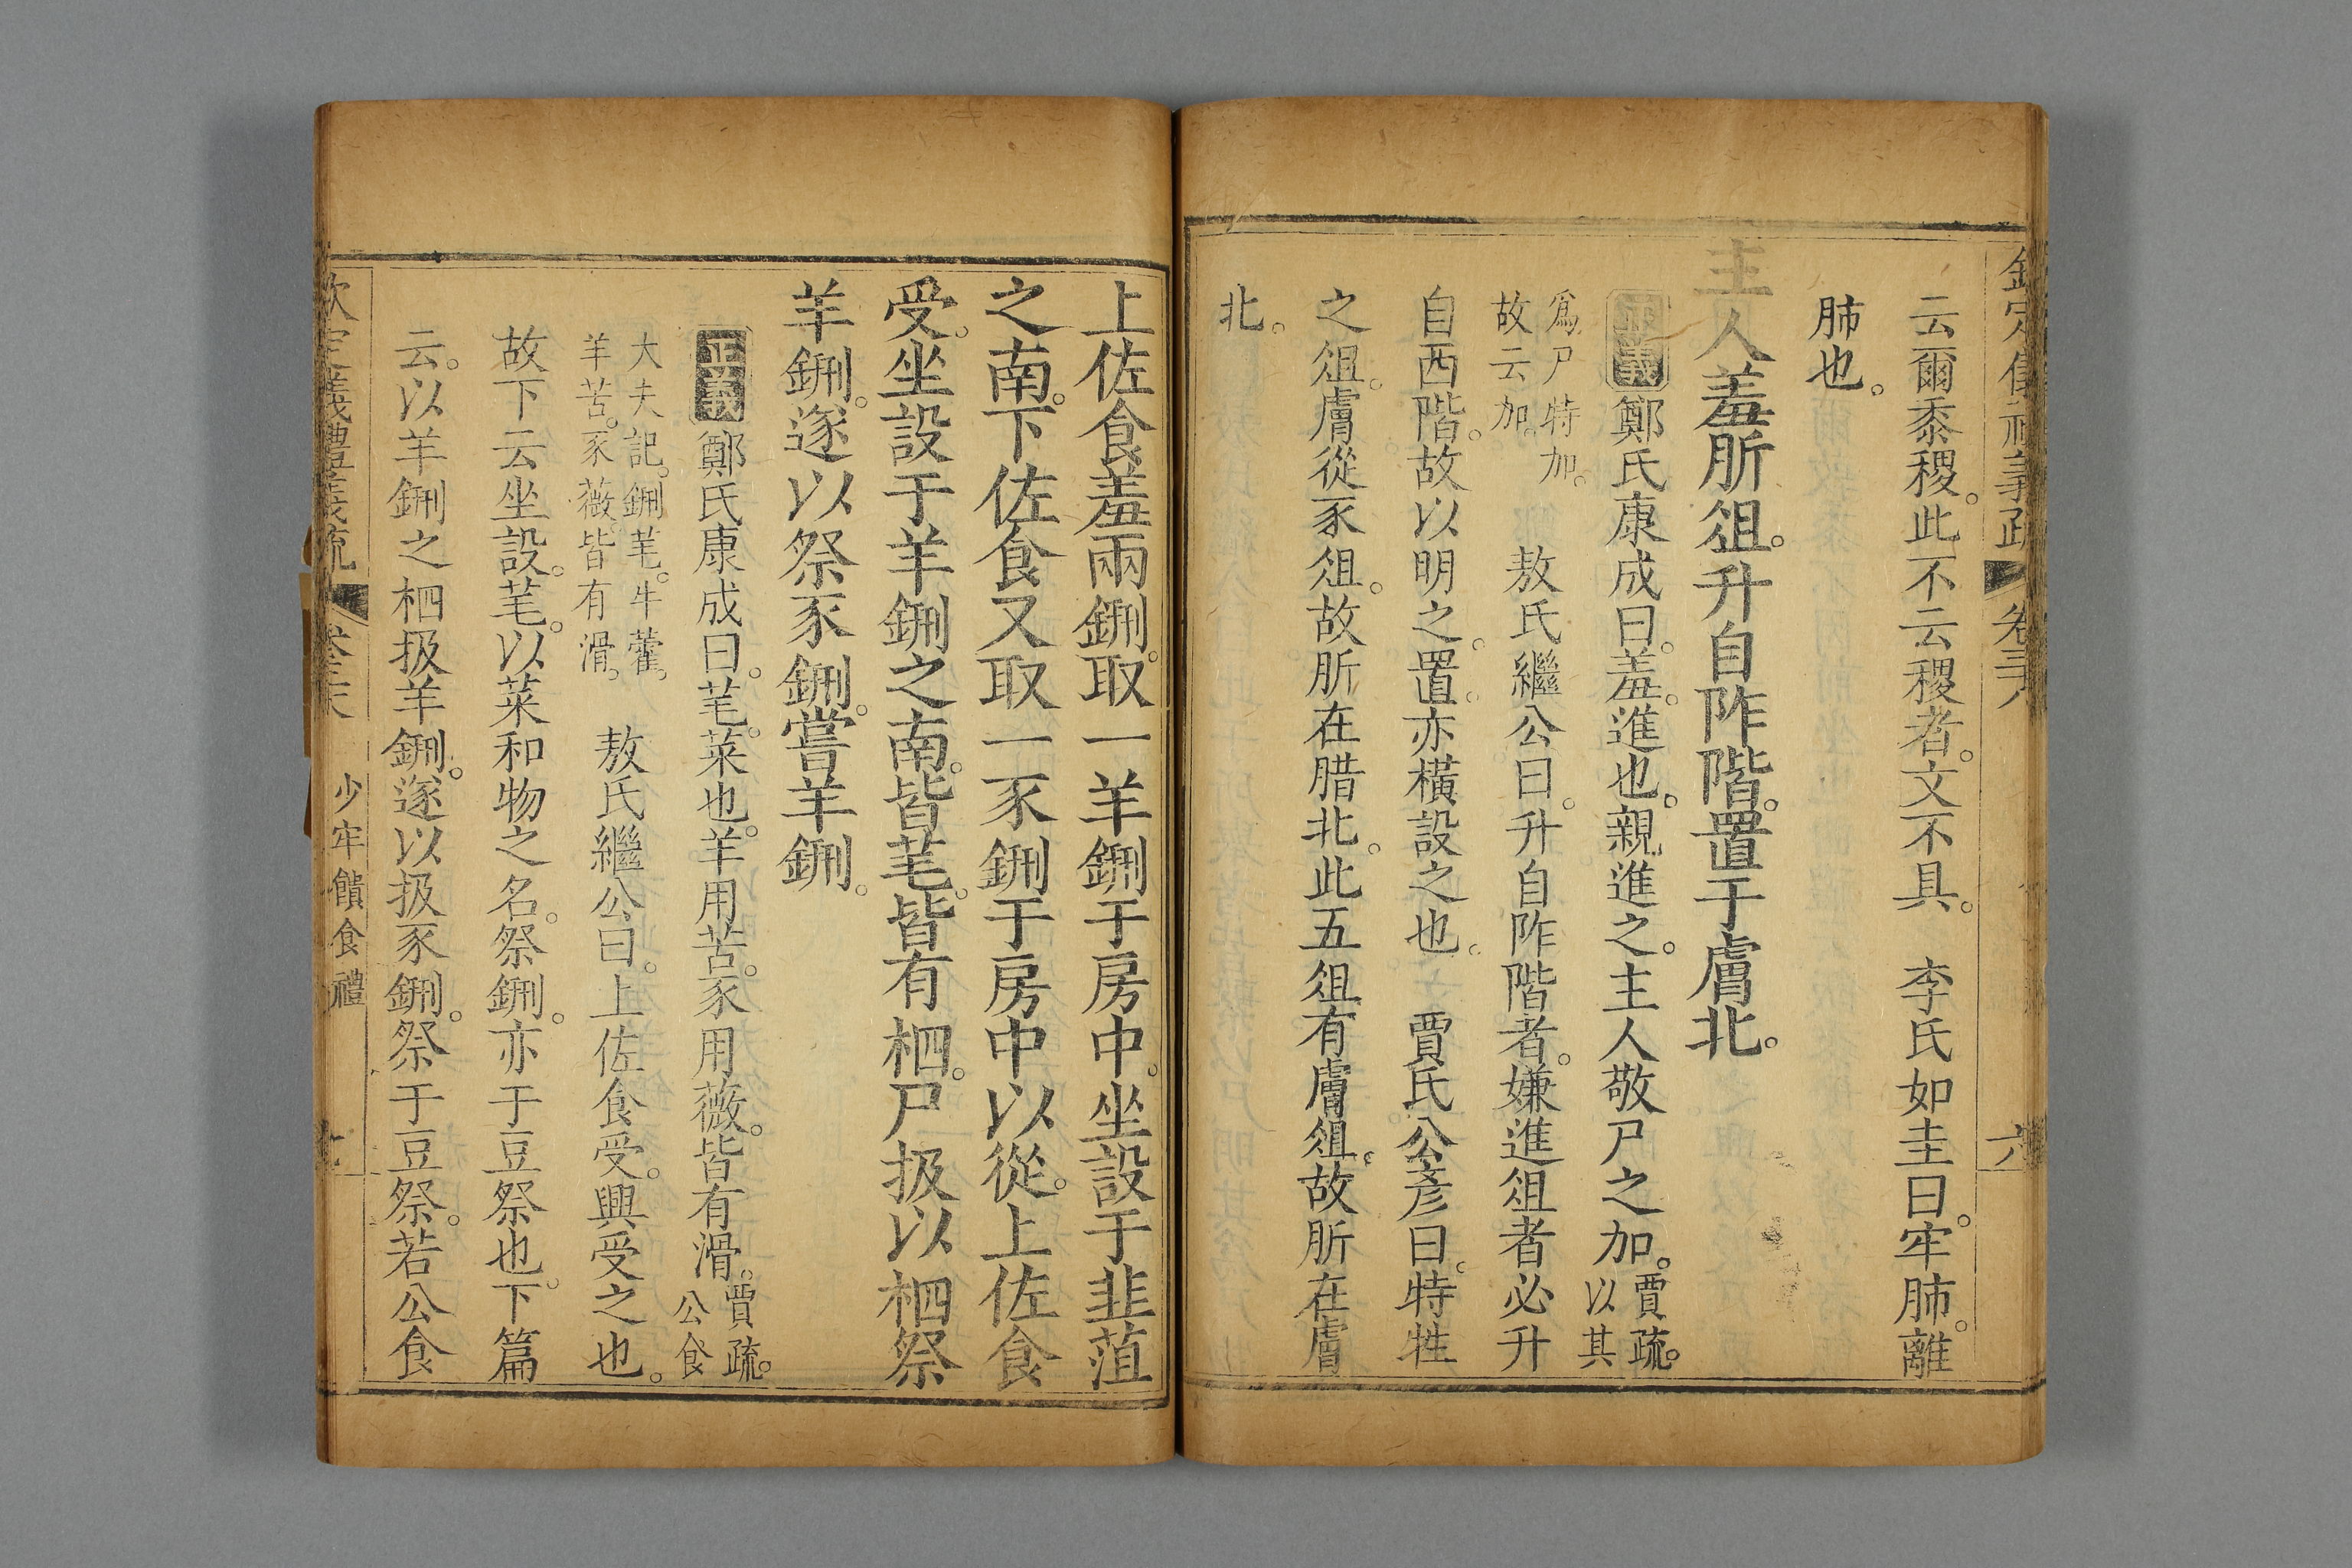 欽定儀禮義疏 卷三十八 六
云爾黍稷。此不云稷者。文不具。 李氏如圭曰。牢肺。離
肺也。
主人羞肵俎。升自阼階。置于膚北。
正義鄭氏康成曰。羞。進也。親進之。主人敬尸之加。賈疏。以其
爲尸特加。故云加。 敖氏繼公曰。升自阼階者。嫌進俎者必升
自西階。故以明之。置。亦橫設之也。 賈氏公彥曰。特牲
之俎。膚從豕俎。故肵在腊北。此五俎有膚俎。故肵在膚
北。
上佐食羞兩鉶。取一羊鉶于房中。坐設于韭菹
之南。下佐食又取一豕鉶于房中以從。上佐食
受。坐設于羊鉶之南。皆芼。皆有柶。尸扱以柶祭
羊鉶。遂以祭豕鉶。嘗羊鉶。
正義鄭氏康成曰。芼。菜也。羊用苦。豕用薇。皆有滑。賈疏。公食
大夫記。鉶芼。牛藿。羊苦。豕薇。皆有滑。 敖氏繼公曰。上佐食受。興受之也。
故下云坐設。芼。以菜和物之名。祭鉶。亦于豆祭也。下篇
云。以羊鉶之柶扱羊鉶。遂以扱豕鉶。祭于豆祭。若公食
欽定儀禮義疏 少牢饋食禮 七